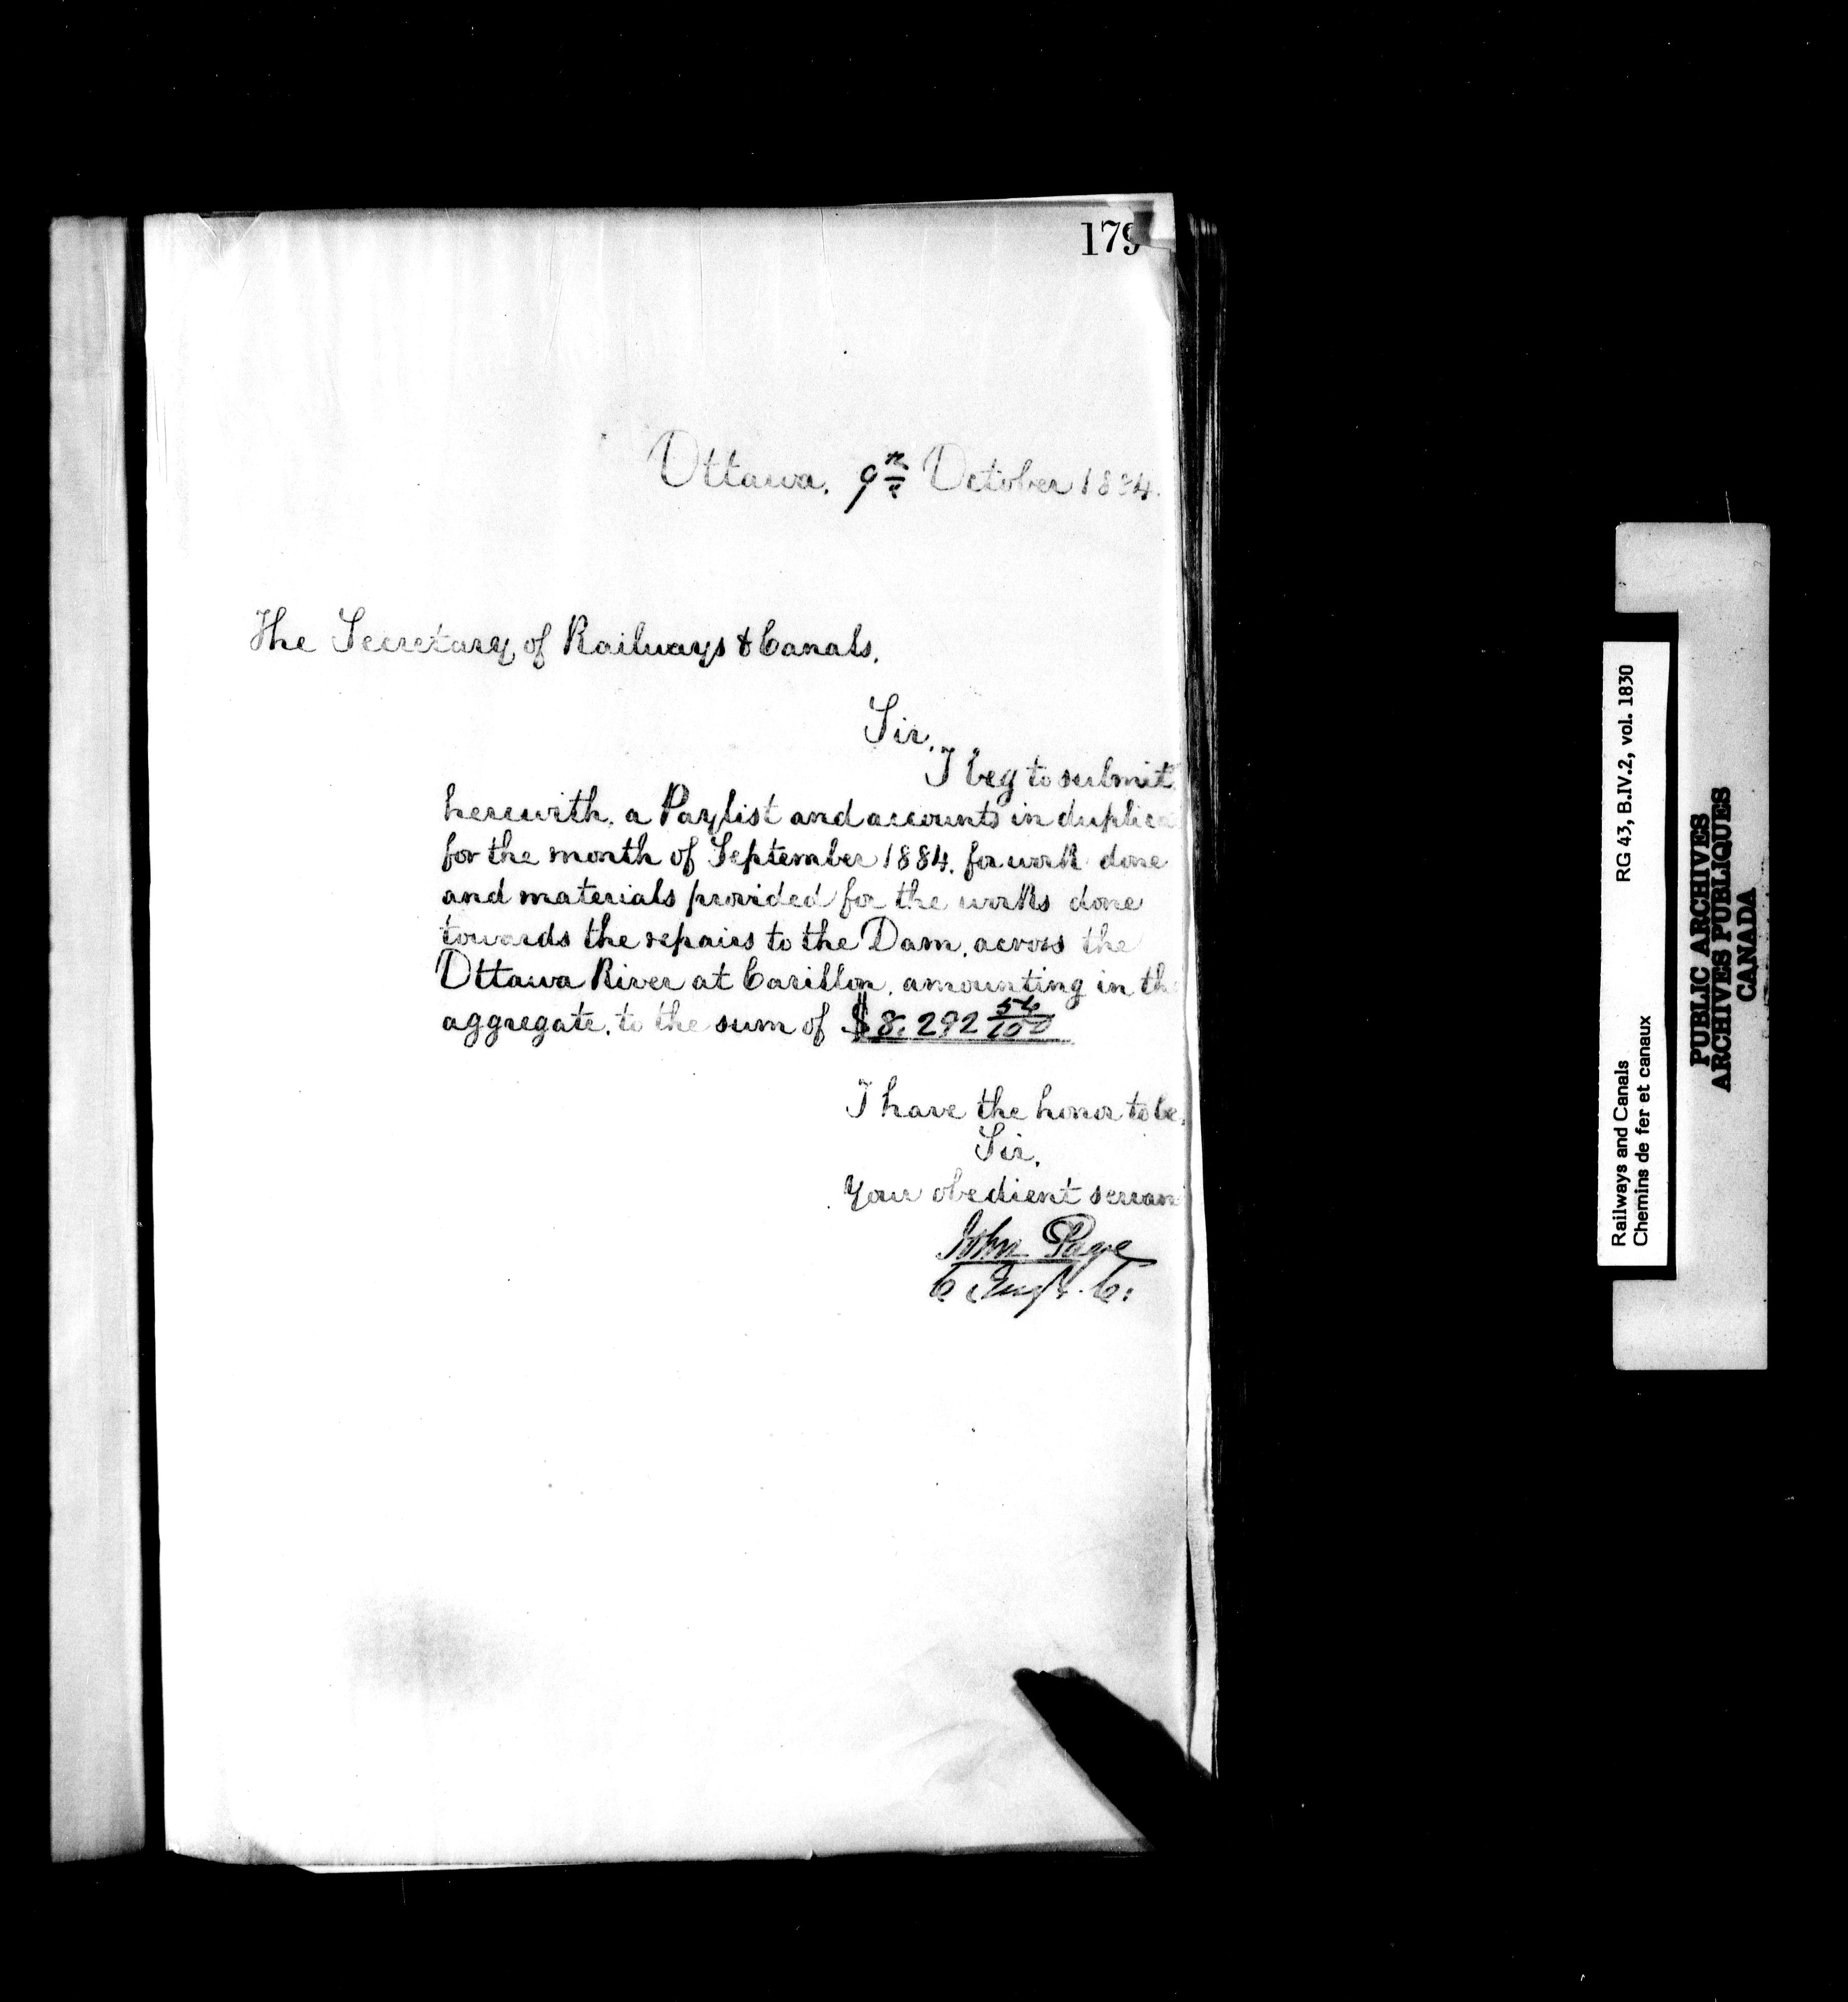 179
Ottawa. 9th October 1884.
The Secretary of Railways & Canals.
Sir.
I beg to submit
herewith. a Paylist and accounts in duplica
for the month of September 1884. for work done
and materials provided for the works done
towards the repairs to the Dam. across the
Ottawa River at Carillon. amounting in the
aggregate. to the sum of $8.292 56/100
I have the honor to be.
Sir.
Your obedient servan
John Page
C Engr. C.
Railways and Canals RG 43, B.IV.2, vol. 1830
Chemins de fer et canaux
PUBLIC ARCHIVES
ARCHIVES PUBLIQUES
CANADA